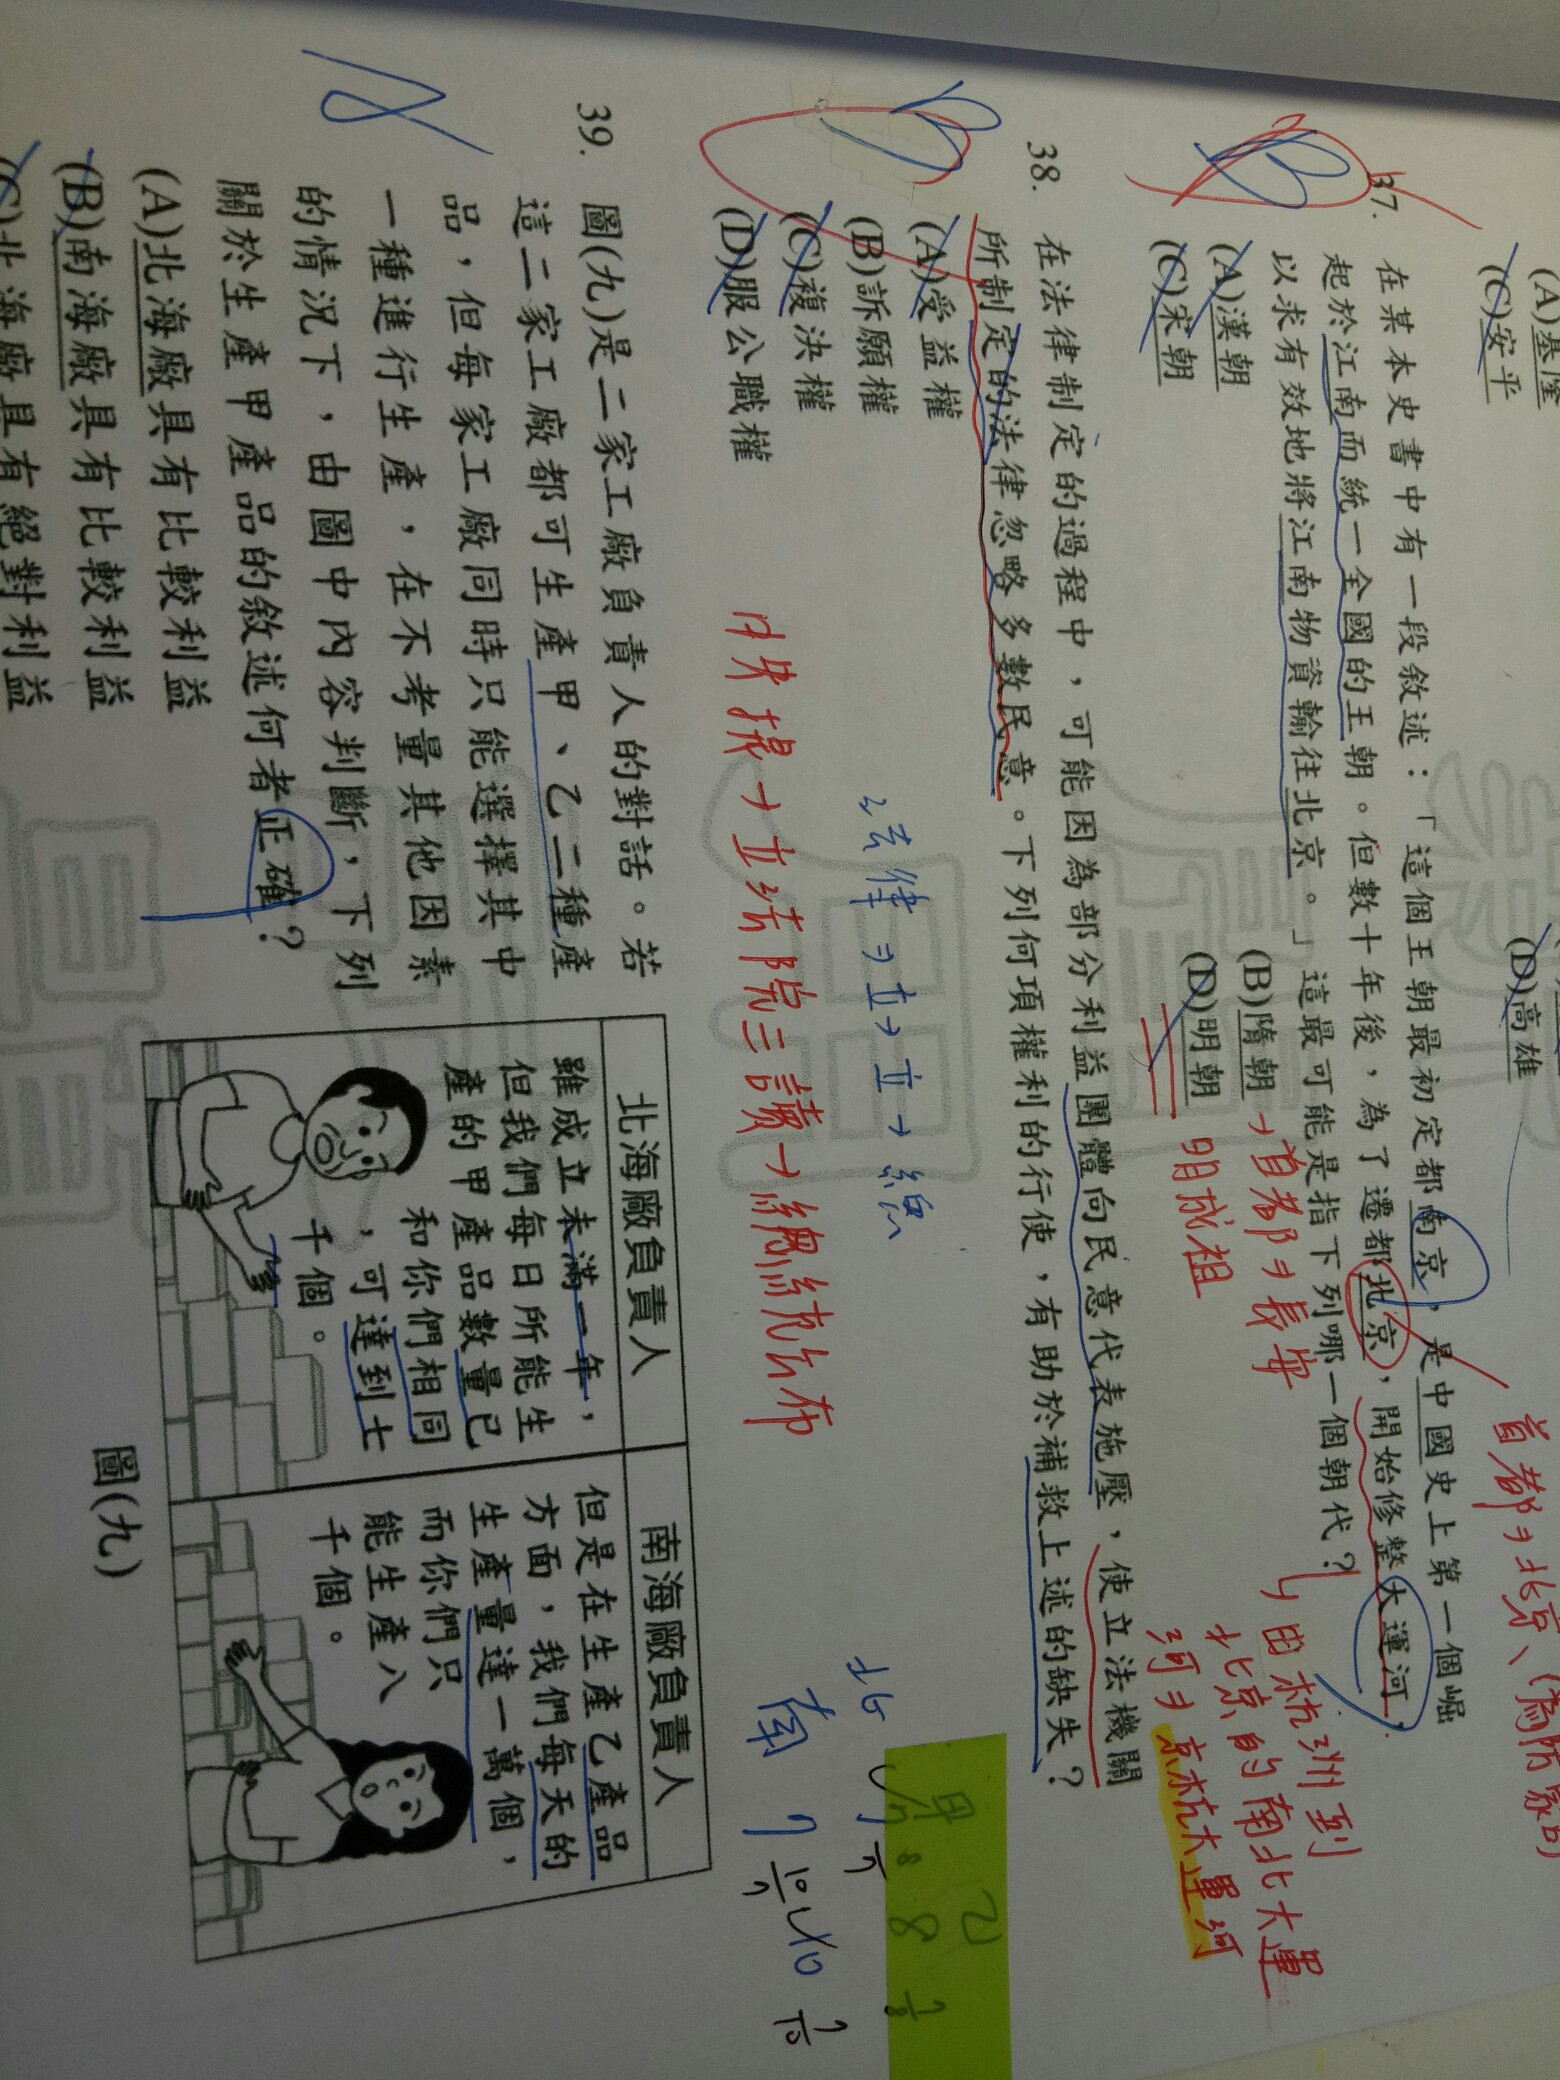 (A)基隆
(C)安平
(D)高雄
37. 在某本史書中有一段敘述：「這個王朝最初定都南京，是中國史上第一個崛
起於江南而統一全國的王朝。但數十年後，為了遷都北京，開始修整大運河，
以求有效地將江南物資輸往北京。」這最可能是指下列哪一個朝代？
(A)漢朝
(B)隋朝→首都⇒長安
(C)宋朝
(D)明朝 明成祖
首都⇒北京、(為防蒙古)
由杭洲到
北京的南北大運
河⇒京杭大運河
38. 在法律制定的過程中，可能因為部分利益團體向民意代表施壓，使立法機關
所制定的法律忽略多數民意。下列何項權利的行使，有助於補救上述的缺失？
(A)受益權
(B)訴願權
(C)複決權
(D)服公職權
法律⇒立→立→總
提→立法院三讀→總統公布
39. 圖(九)是二家工廠負責人的對話。若
這二家工廠都可生產甲、乙二種產
品，但每家工廠同時只能選擇其中
一種進行生產，在不考量其他因素
的情況下，由圖中內容判斷，下列
關於生產甲產品的敘述何者正確？
(A)北海廠具有比較利益
(B)南海廠具有比較利益
(C)北海廠具有絕對利益
北海廠負責人
雖成立未滿一年，
但我們每日所能生
產的甲產品數量已
和你們相同
，可達到七
千個。
南海廠負責人
但是在生產乙產品
方面，我們每天的
生產量達一萬個，
而你們只
能生產八
千個。
圖(九)
甲 乙
北 7 8/7 8 7/8
南 7 10/7 10 7/10